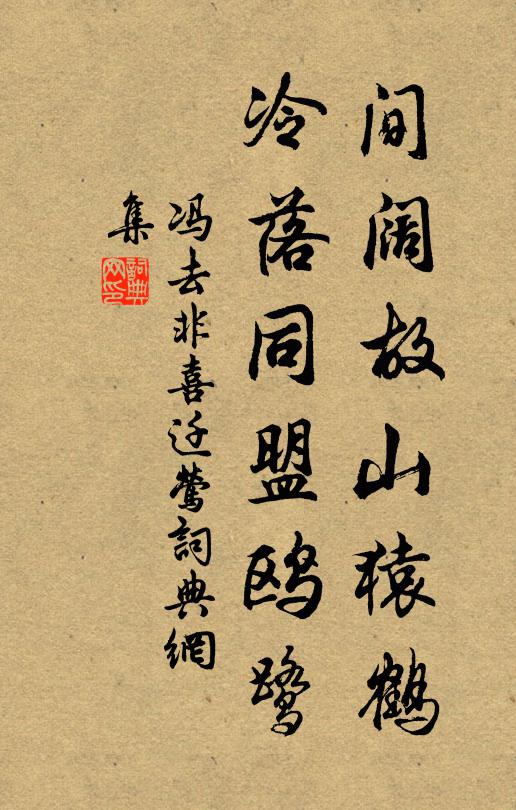 间阔故山猿鹤
冷落同盟鸥鹭
冯去非喜迁莺詞典網
集
詞典
网印